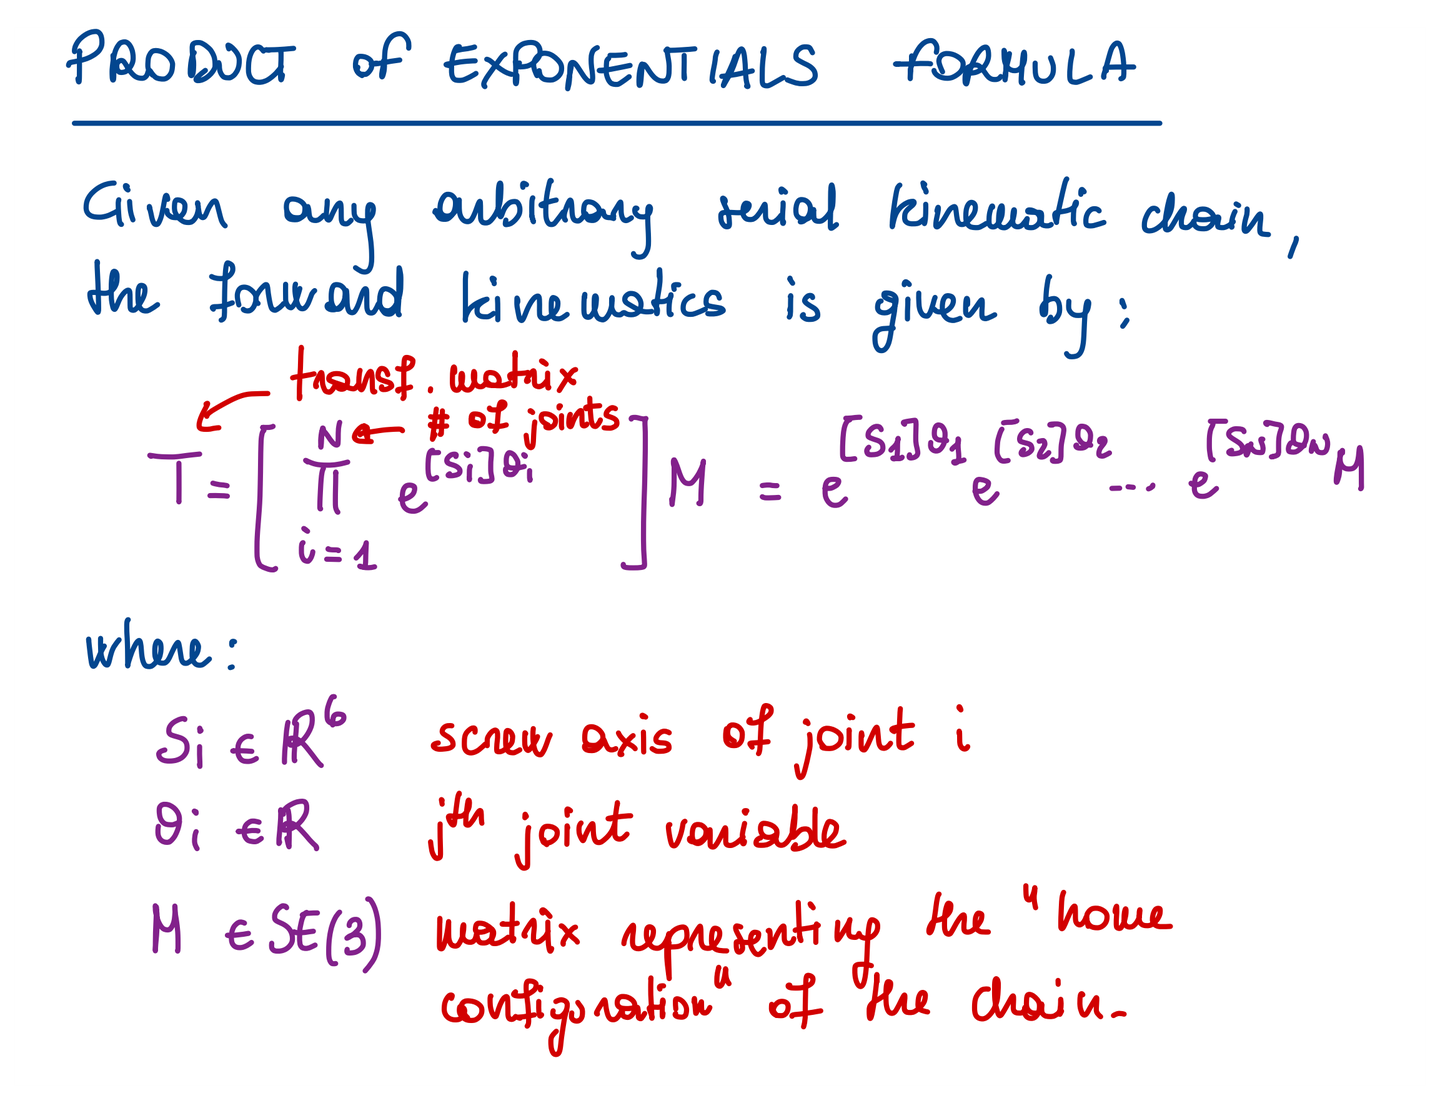 PRODUCT of EXPONENTIALS FORMULA
Given any arbitrary serial kinematic chain,
the forward kinematics is given by:
transf. matrix
# of joints
T = [ N ∏ i=1 e^[Si]θi ] M = e^[S1]θ1 e^[S2]θ2 ... e^[SN]θN M
where:
Si ∈ ℝ^6 screw axis of joint i
θi ∈ ℝ j^th joint variable
M ∈ SE(3) matrix representing the "home
configuration" of the chain.